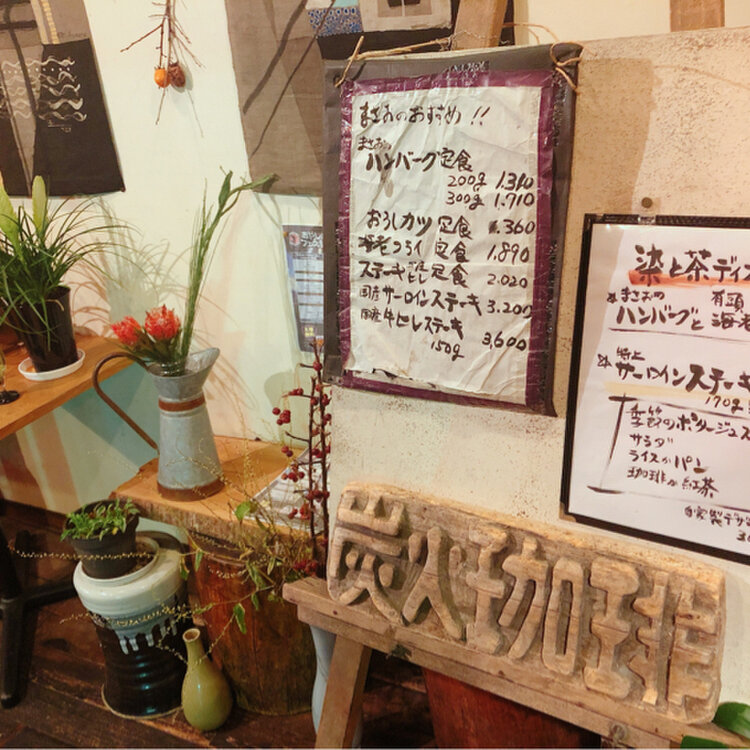 まさおのおすすめ!!
まさおの
ハンバーグ定食
200g 1.310
300g 1.710
おろしカツ 定食 1.360
海老フライ 定食 1.890
ステーキ 定食 2.020
国産 サーロインステーキ 3.200
国産牛ヒレステーキ 3,600
150g
染と茶ディ
まさおの 有頭
ハンバーグと 海老
特上
サーロインステーキ
170g
季節のポタージュス
サラダ
ライスかパン
珈琲か紅茶
自家製デザ
炭火珈琲